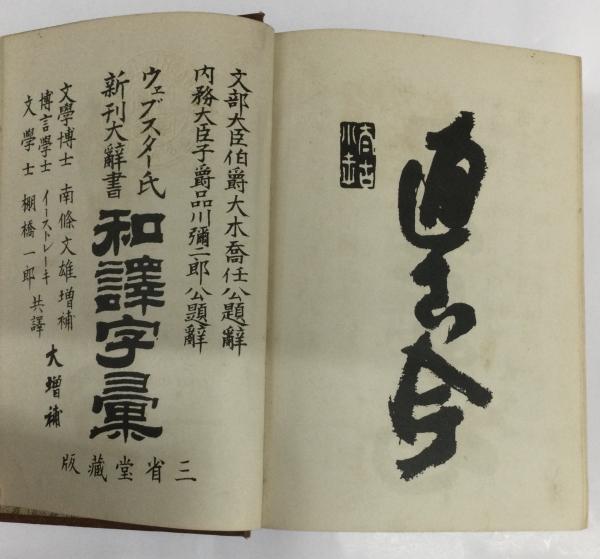 通古今
文部大臣伯爵大木喬任公題辭
内務大臣子爵品川彌二郎公題辭
ウェブスター氏
新刊大辭書
和譯字彙
文學博士 南條文雄增補
博言學士 イーストレーキ
文學士 棚橋一郎 共譯
大增補
三省堂藏版